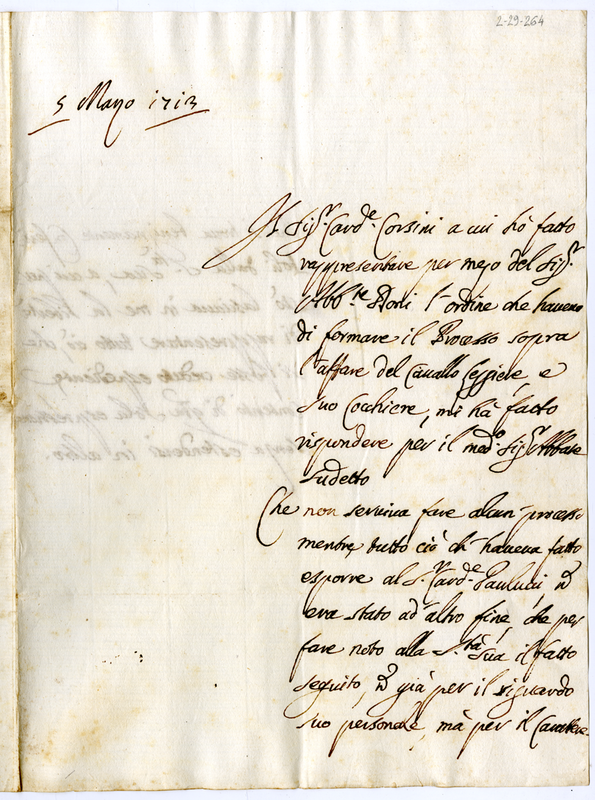 2-29-264
5 Marzo 1713
Il Sig.r Card.e Corsini a cui hò fatto
rappresentare per mezo del Sig.r
Abb.te Doni l'ordine che havevo
di formare il Processo sopra
l'affare del Cavallo leggiere e
suo Cocchiere, mi hà fatto
rispondere per il med.o Sig.r Abbate
sudetto
Che non serviva fare alcun processo
mentre tutto ciò ch'haveva fatto
esporre al S.r Card.e Paulucci nō
era stato ad altro fine, che per
fare noto alla S.tà Sua il fatto
seguito, nō già per il riguardo
suo personale, mà per il Carattere